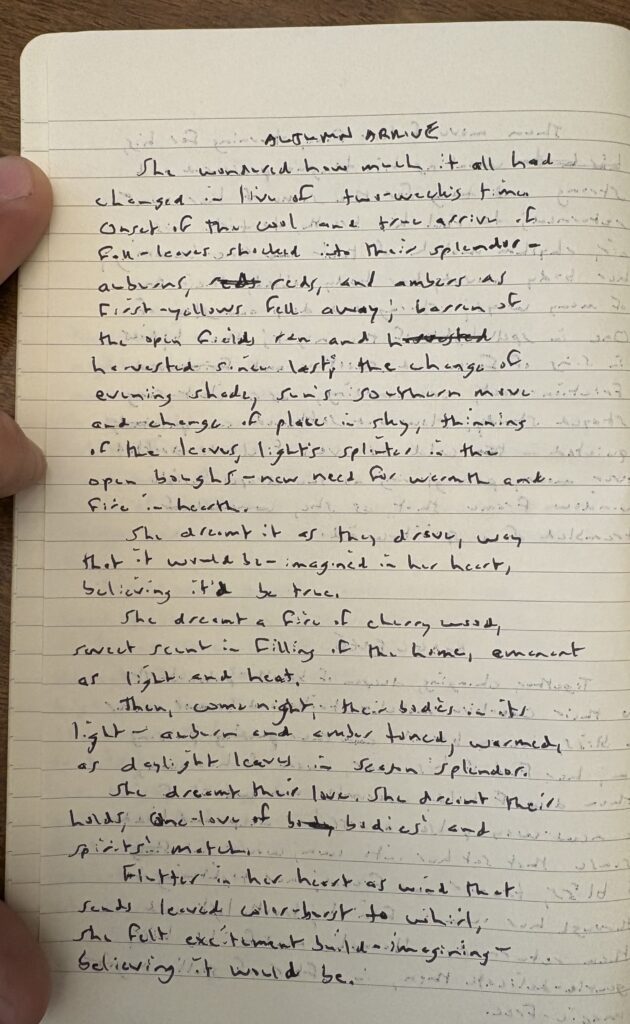 AUTUMN ARRIVE
She wondered how much it all had
changed in live of two-week's time.
Onset of the cool and true arrive of
Fall-leaves shocked into their splendor-
auburns, reds, and ambers as
first-yellows fell away; barren of
the open fields ran and harvested
harvested since last; the change of
evening shade, sun's southern move
and change of place in sky, thinning
of the leaves, light's splinter in the
open boughs-new need for warmth and
fire in hearth.
She dreamt it as they drove, way
that it would be-imagined in her heart,
believing it'd be true.
She dreamt a fire of cherry wood,
sweet scent in filling of the home, ament
as light and heat.
Then, come night, their bodies in its
light- auburn and amber toned, warmed,
as daylight leaves in season splendor.
She dreamt their love. She dreamt their
holds, One-love of body bodies' and
spirits' match.
Flutter in her heart as wind that
sends leaved color-burst to whirl,
she felt excitement build-imagining-
believing it would be.